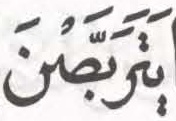 يَتَرَبَّصْنَ